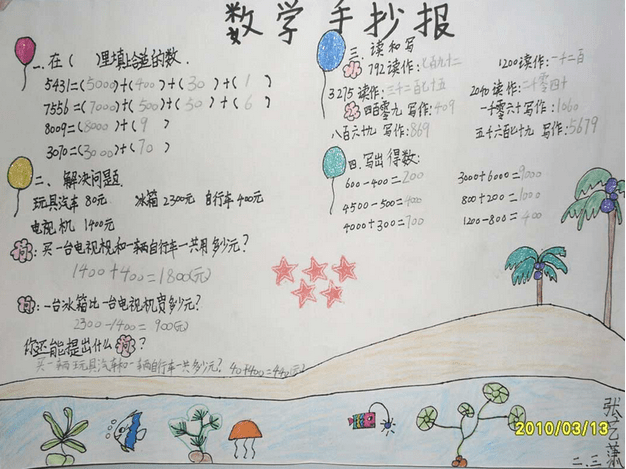 数学手抄报
一.在( )里填上合适的数.
5431=(5000)+(400)+(30)+(1)
7556=(7000)+(500)+(50)+(6)
8009=(8000)+(9)
3070=(3000)+(70)
二、解决问题.
玩具汽车 80元 冰箱 2300元 自行车 400元
电视机 1400元
问:买一台电视机和一辆自行车一共用多少元?
1400+400=1800(元)
问:一台冰箱比一台电视机贵多少元?
2300-1400=900(元)
你还能提出什么问?
买一辆玩具汽车和一辆自行车一共多少元?
三、读和写
792读作:七百九十二 1200读作:一千二百
3275读作: 2040读作:二千零四十
四百零九 写作:409 一千零六十 写作:1060
八百六十九 写作:869 五千六百七十九 写作:5679
四.写出得数:
600-400=200 3000+6000=9000
4500-500=4000 800+200=1000
4000+300= 1200-800=400
张艺潇
二.三
2010/03/13